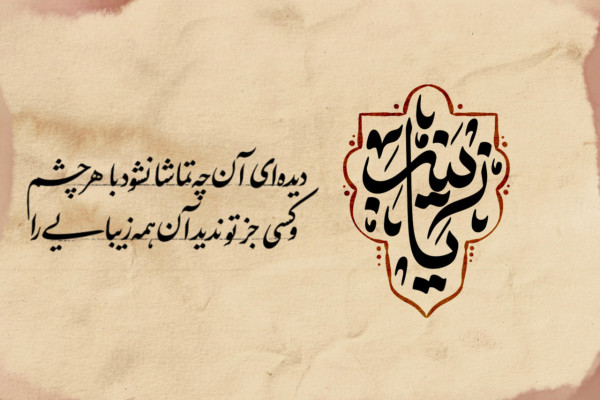 دیده‌ای آن چه تماشا نشود با هر چشم
و کسی جز تو ندید آن همه زیبایی را
یا زینب